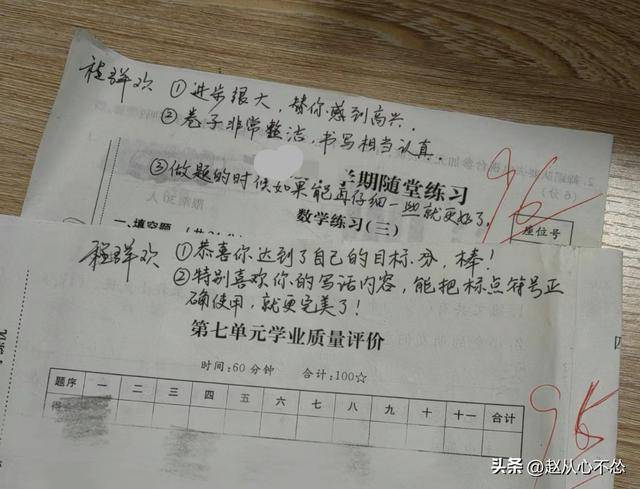 程群欢 ①进步很大,替你感到高兴.
②卷子非常整洁,书写相当认真.
③做题的时候如果能再仔细一些就更好了.
期随堂练习
数学练习(三)
座位号
一、填空题
96
程群欢 ①恭喜你达到了自己的目标分,棒!
②特别喜欢你的写话内容,能把标点符号正
确使用,就更完美了!
第七单元学业质量评价
时间:60分钟 合计:100☆
题序 一 二 三 四 五 六 七 八 九 十 十一 合计
得
头条 @赵从心不怂